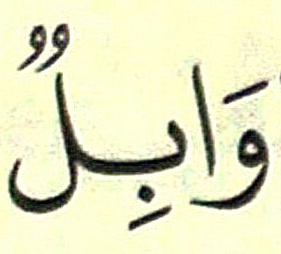 وَابِلٌ